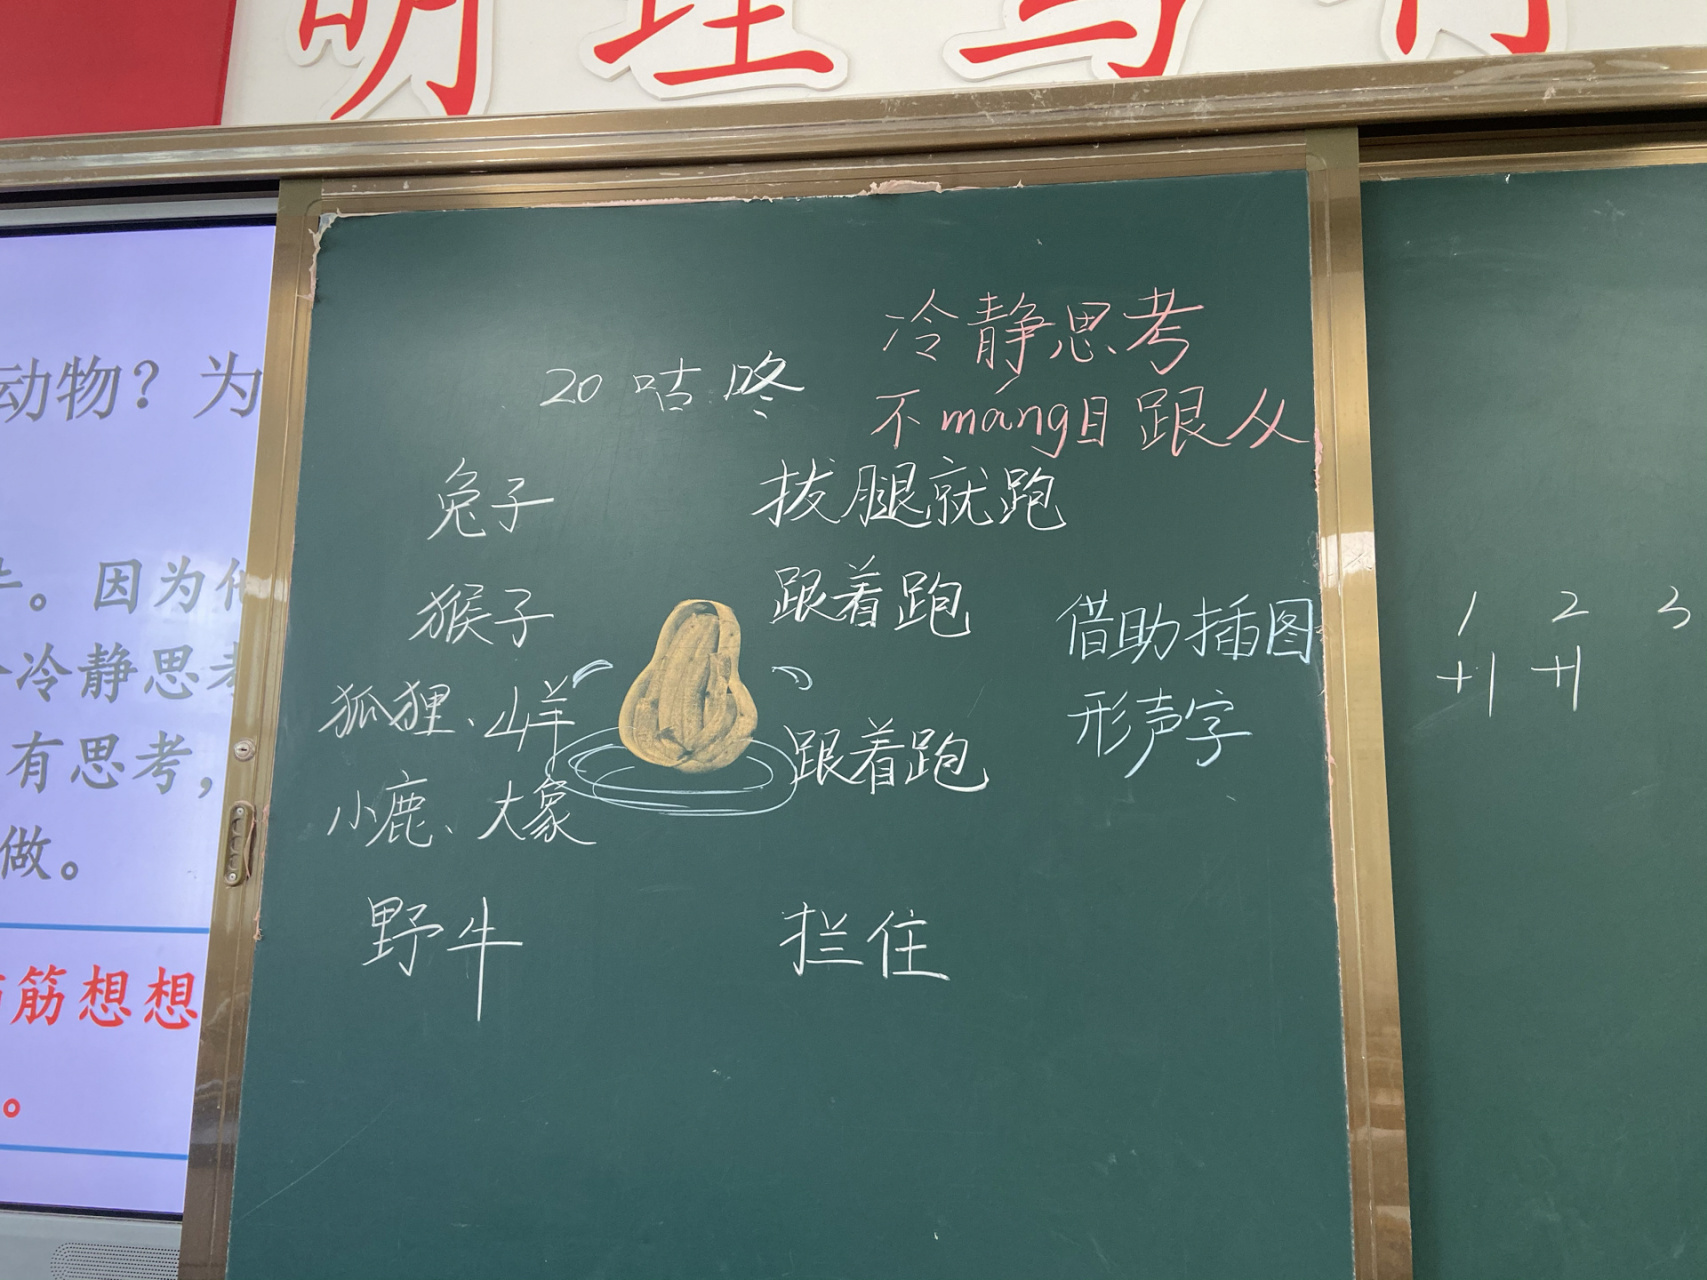 明理
20 咕咚
冷静思考
不máng目跟从
兔子 拔腿就跑
猴子 跟着跑
狐狸、山羊 跟着跑
小鹿、大象
野牛 拦住
借助插图
形声字
1 2 3
+1 +1
动物？为
。因为他
冷静思考
有思考，
做。
筋想想
。